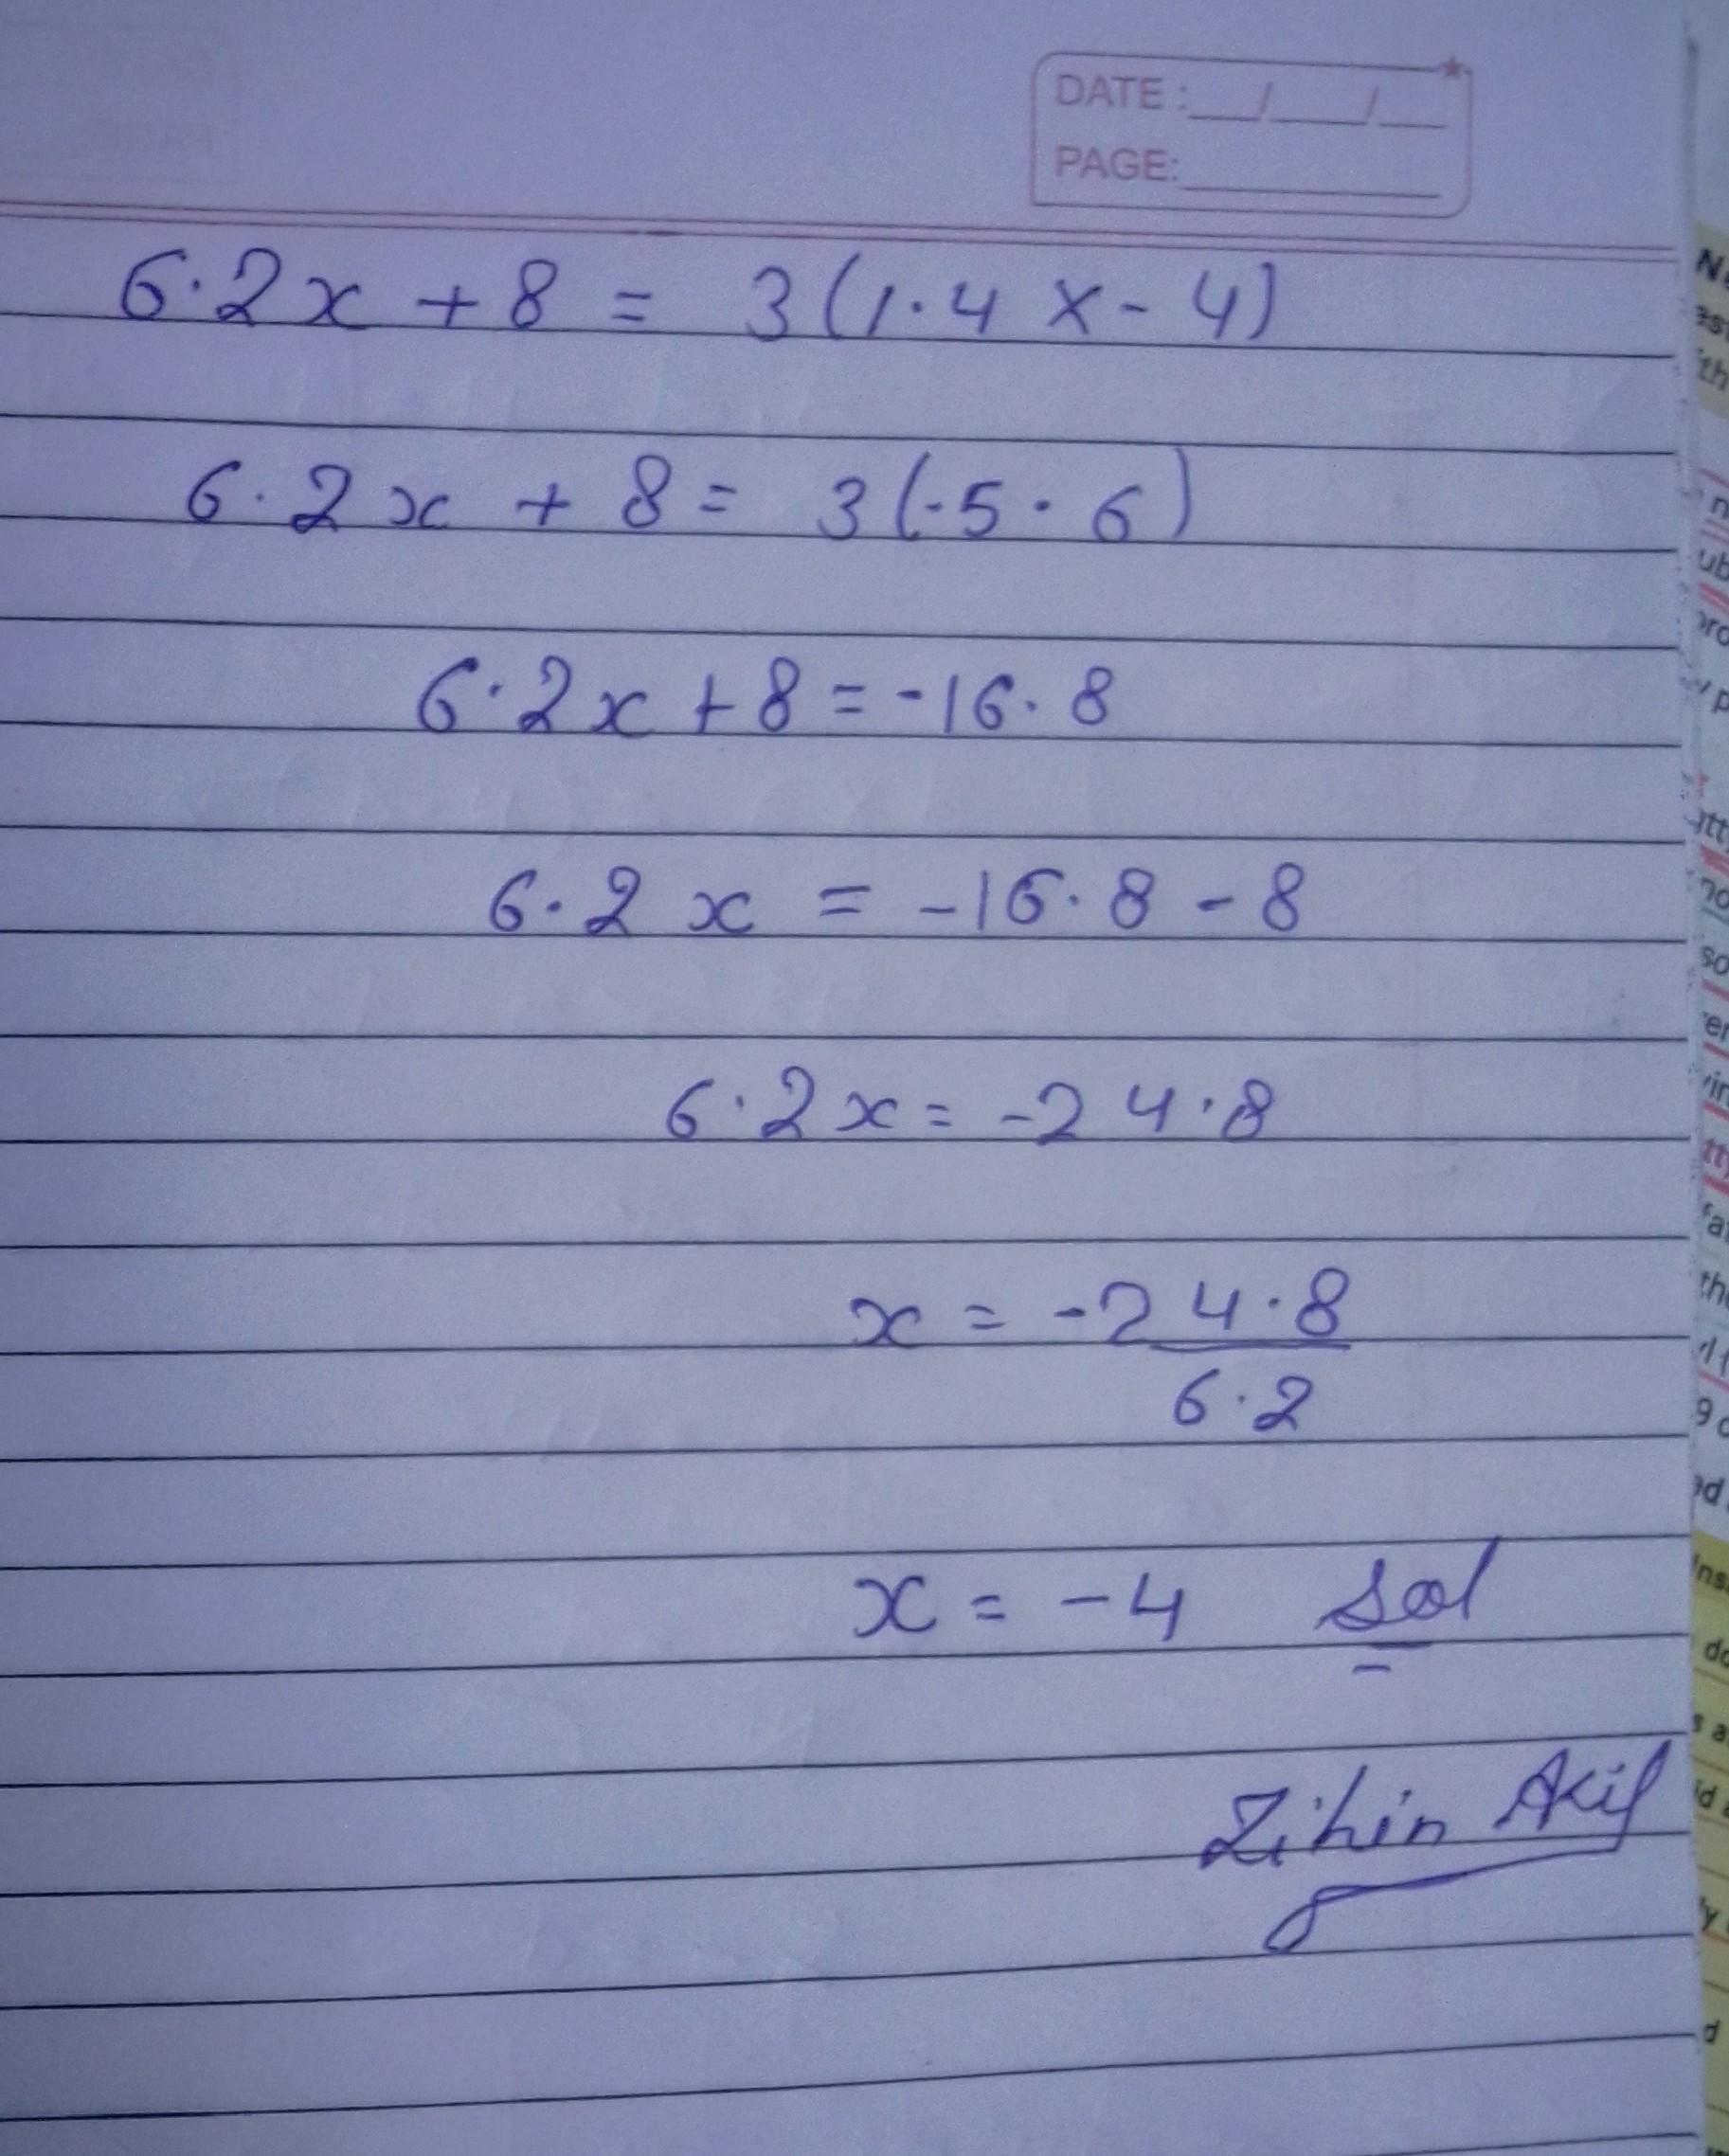 DATE : __/__/__
PAGE: ______
6·2x + 8 = 3(1·4 x - 4)
6·2x + 8 = 3(-5·6)
6·2x + 8 = -16·8
6·2x = -16·8 - 8
6·2x = -24·8
x = -24·8
6·2
x = -4 Sol
Zihin Akif